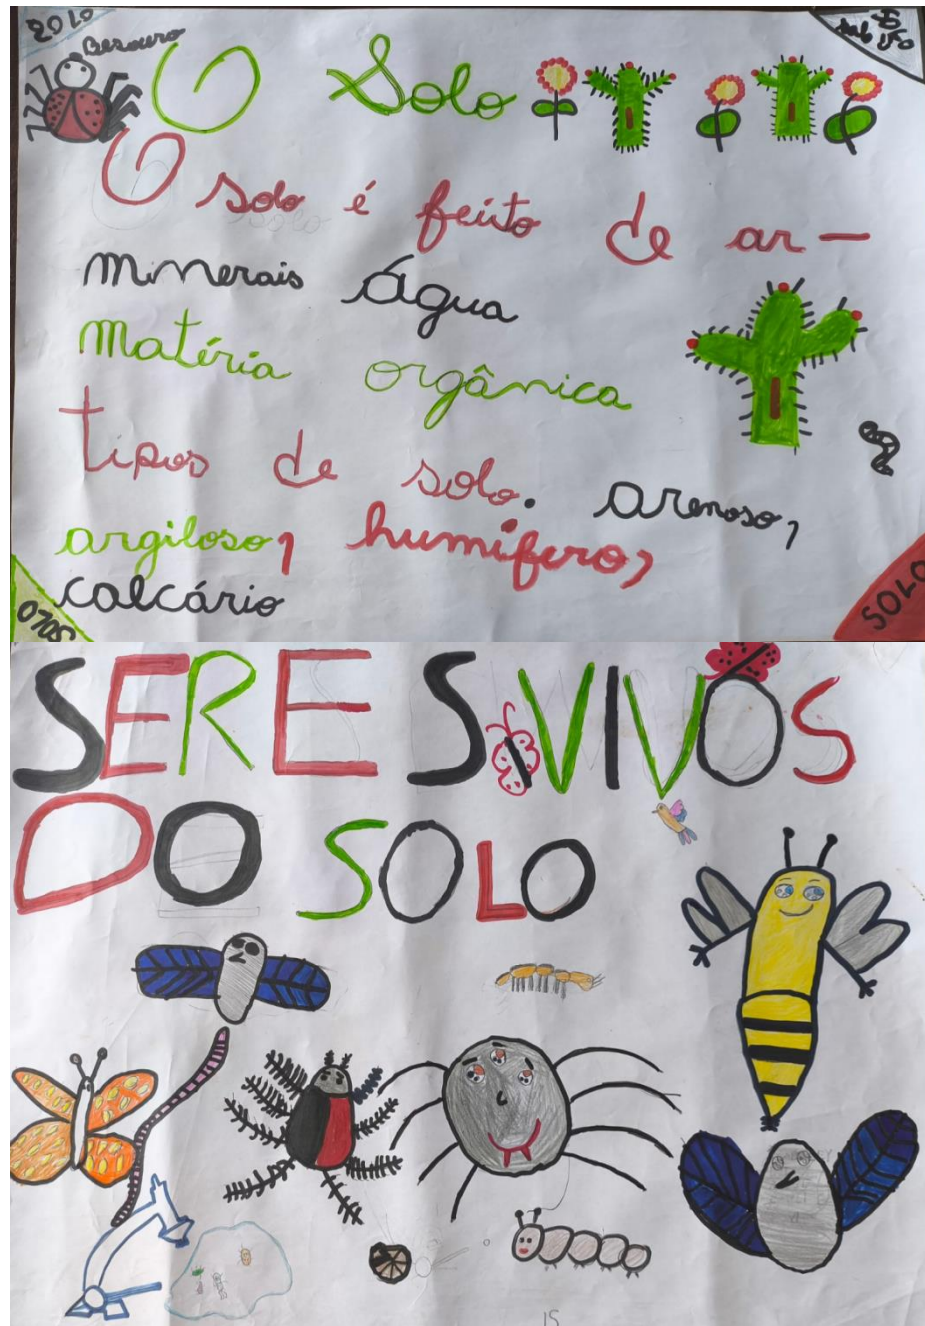 SOLO
Besouro
O Solo
O solo é feito de ar-
minerais água
matéria orgânica
tipos de solo. arenoso,
argiloso, humífero,
calcário
SOLO
SOLO
SERES VIVOS
DO SOLO